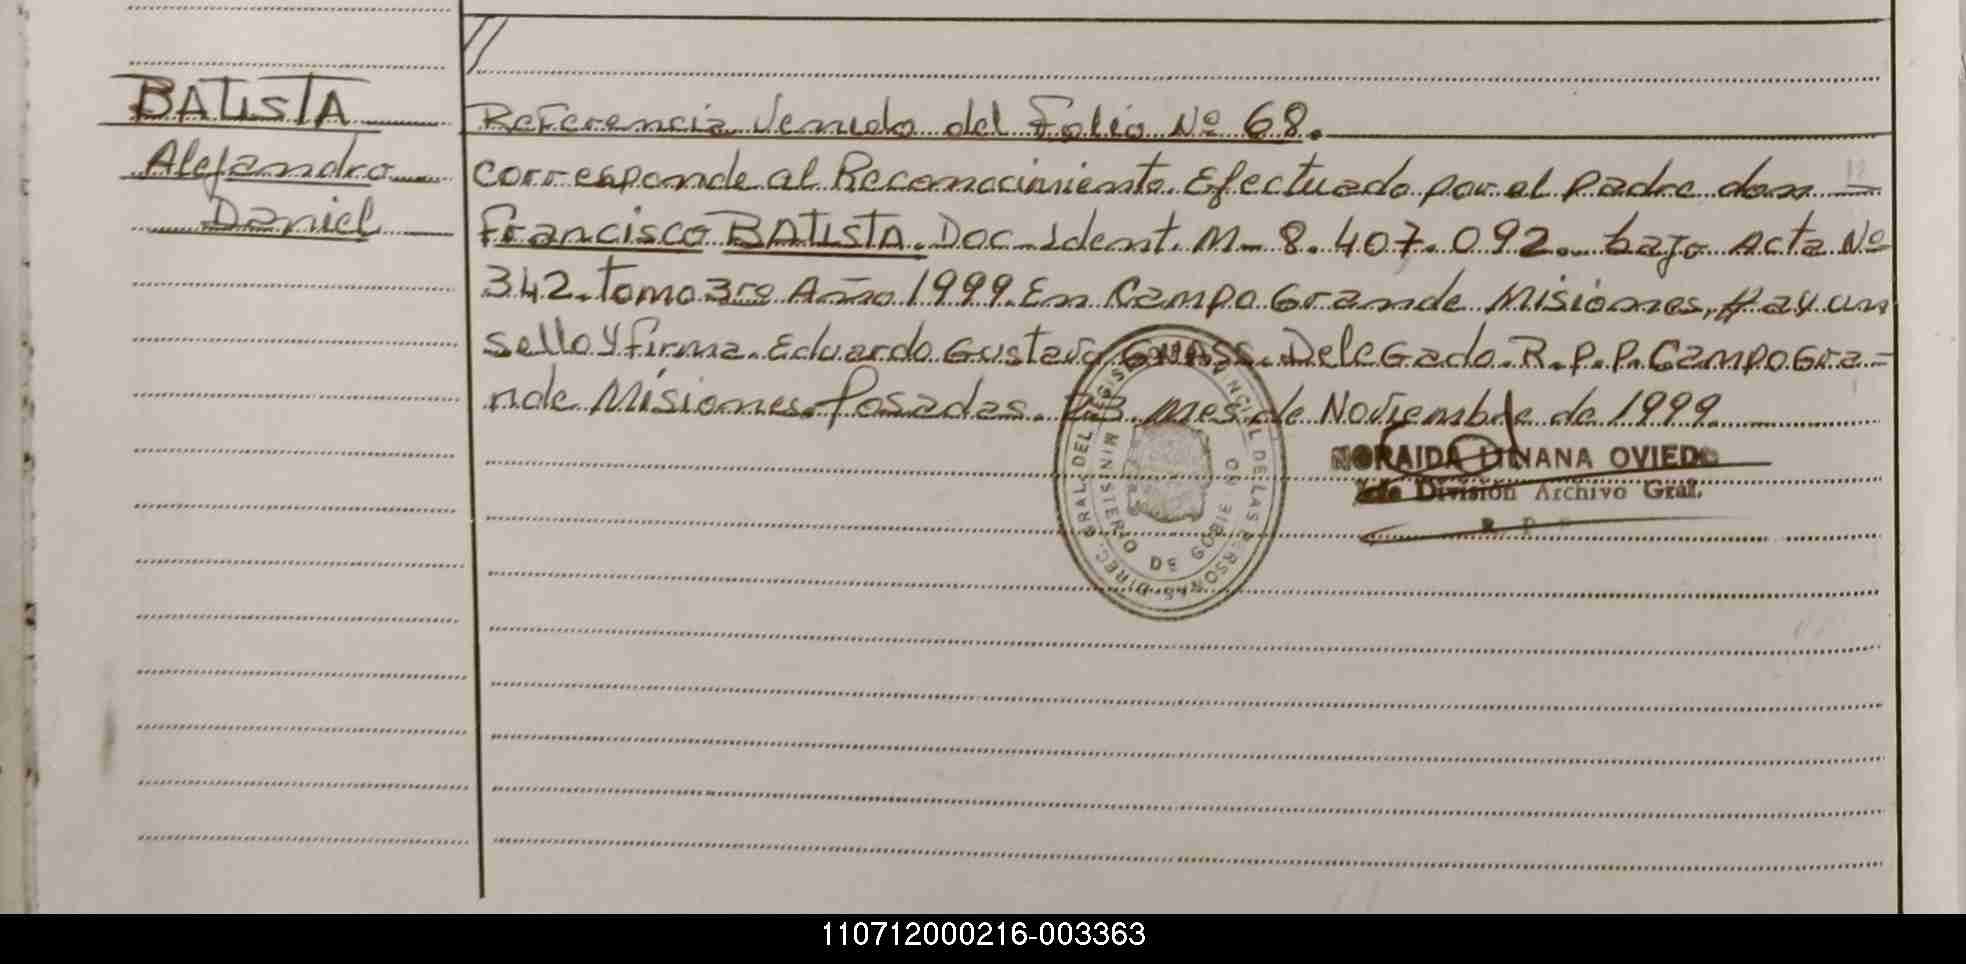 BATISTA
Alejandro
Daniel
Referencia Venida del Folio Nº 68.
corresponde al Reconocimiento Efectuado por el padre don
Francisco BATISTA. Doc. Ident. M- 8.407.092. bajo Acta Nº
342. Tomo 3ro Año 1999. En Campo Grande Misiones, Hay un
sello y firma. Eduardo Gustavo Delegado. R.P.P. Campo Gra-
nde Misiones. Posadas. 23 mes de Noviembre de 1999.
NORAIDA DINANA OVIEDO
Jefe División Archivo Gral.
R P P
DIREC. GRAL. DEL REGISTRO PROVINCIAL DE LAS PERSONAS
MINISTERIO DE GOBIERNO
110712000216-003363